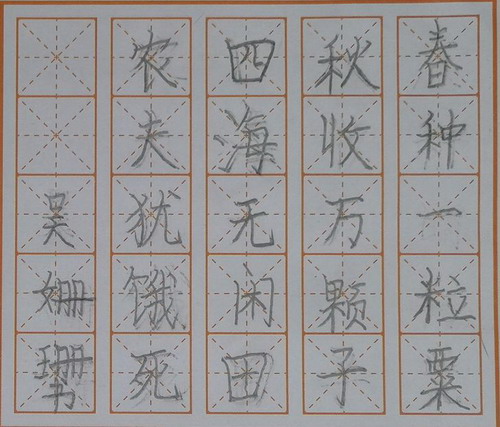 春种一粒粟
秋收万颗子
四海无闲田
农夫犹饿死
吴姗